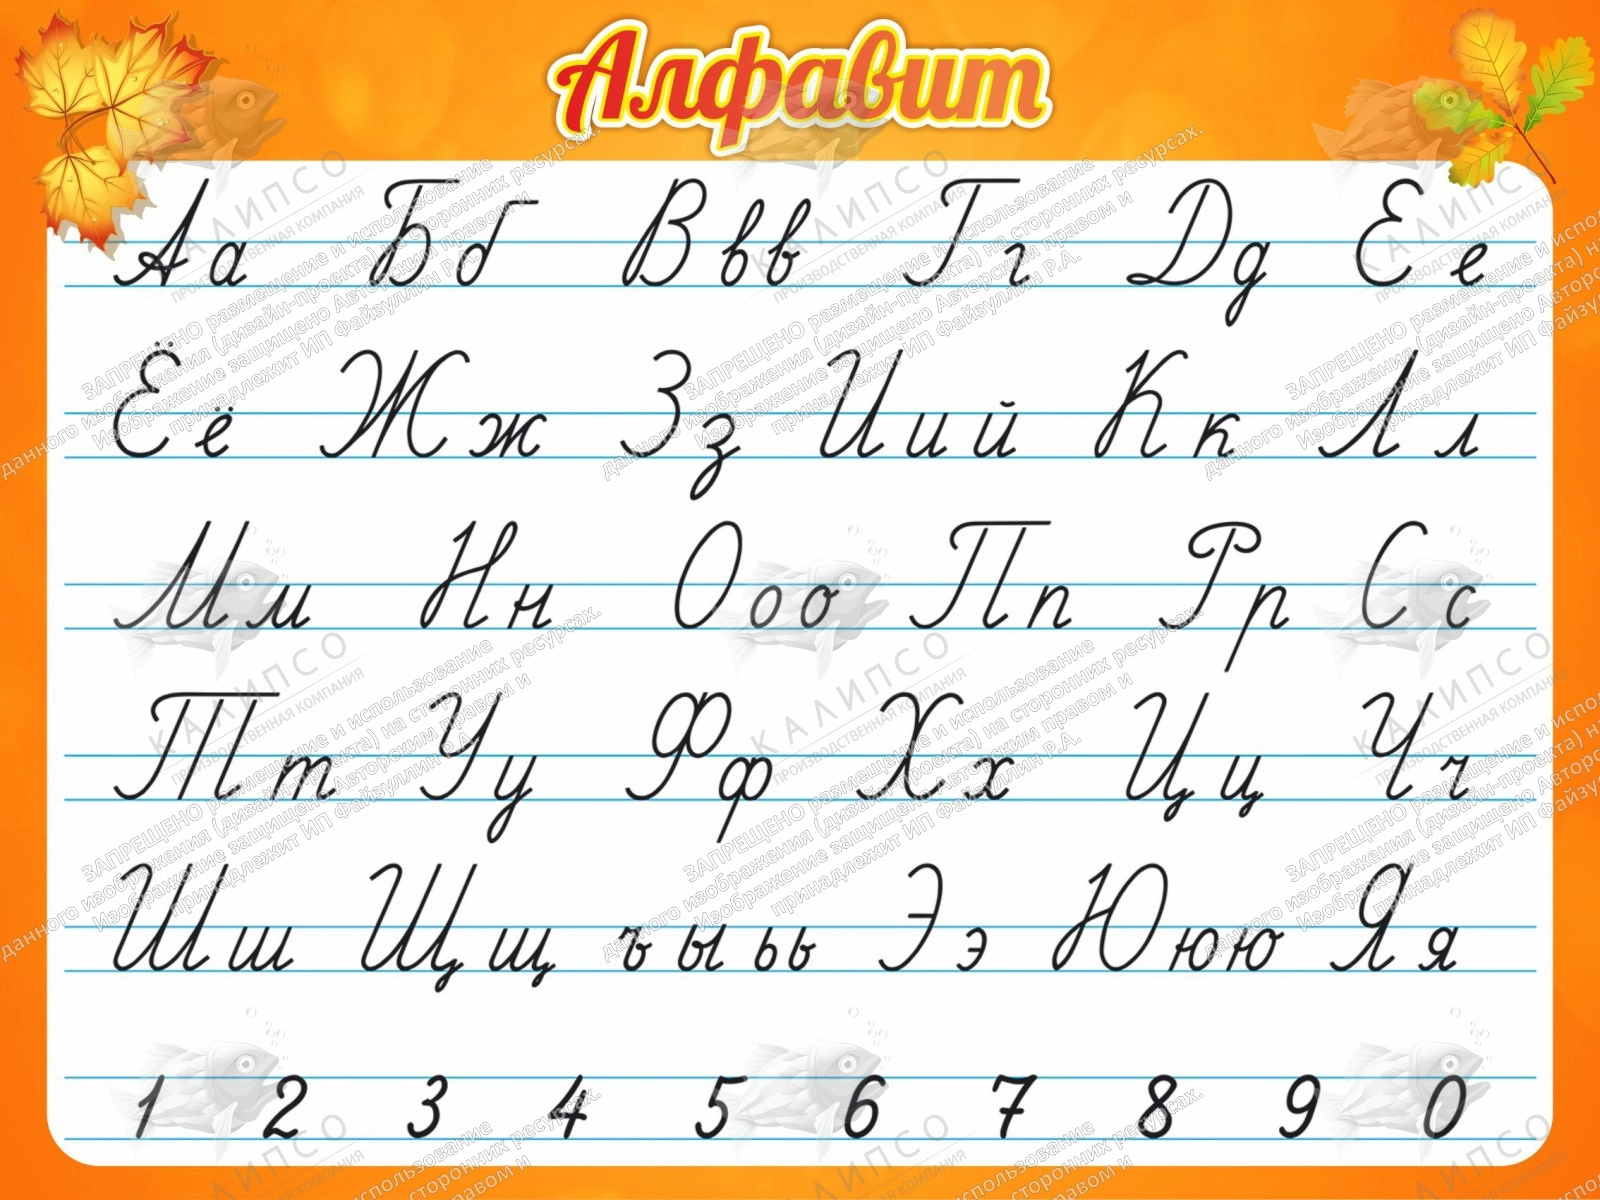 Алфавит
Аа Бб Ввв Гг Дд Ее
Ёё Жж Зз Иий Кк Лл
Мм Нн Ооо Пп Рр Сс
Тт Уу Фф Хх Цц Чч
Шш Щщ ъ ы ьь Ээ Ююю Яя
1 2 3 4 5 6 7 8 9 0
КАЛИПСО
ПРОИЗВОДСТВЕННАЯ КОМПАНИЯ
ЗАПРЕЩЕНО размещение и использование
данного изображения (дизайн-проекта) на сторонних ресурсах.
Изображение защищено Авторским правом и
принадлежит ИП Файзуллин Р.А.